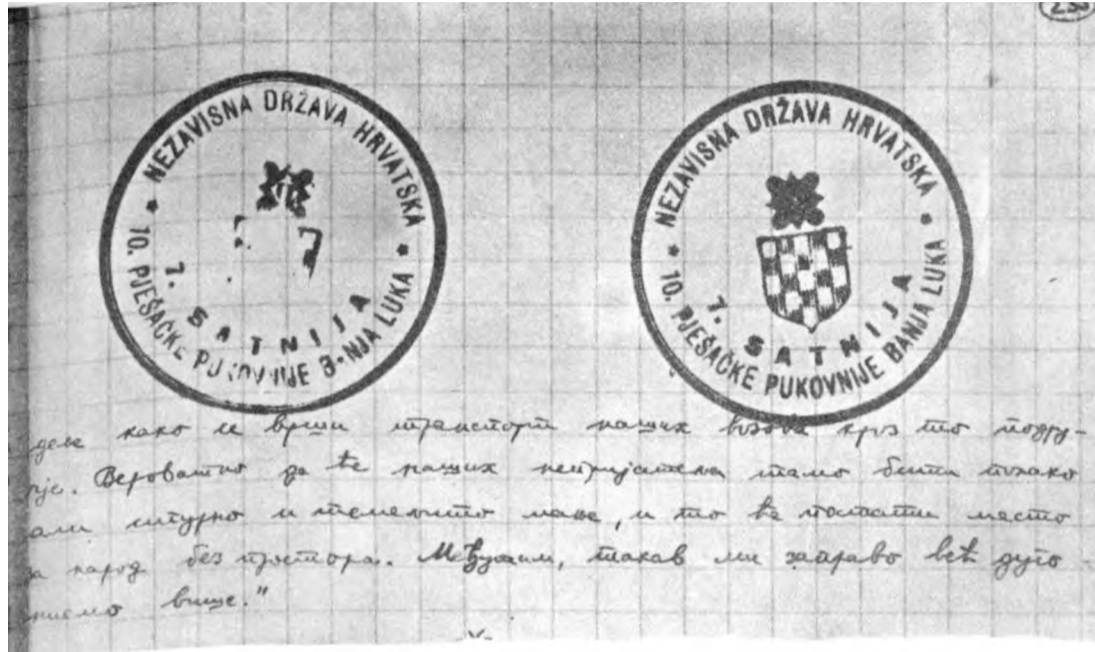 233
NEZAVISNA DRŽAVA HRVATSKA
10. PJEŠAČKE PUKOVNIJE B-NJA LUKA
7. SATNIJA
NEZAVISNA DRŽAVA HRVATSKA
10. PJEŠAČKE PUKOVNIJE BANJA LUKA
7. SATNIJA
како се врши транспорт наших возова кроз то подру-
чје. Вероватно да ће наших непријатеља тамо бити полако
али сигурно и темељито мање, и то ће постати место
за народ без простора. Међутим, такав ми заправо већ дуго
нисмо више."